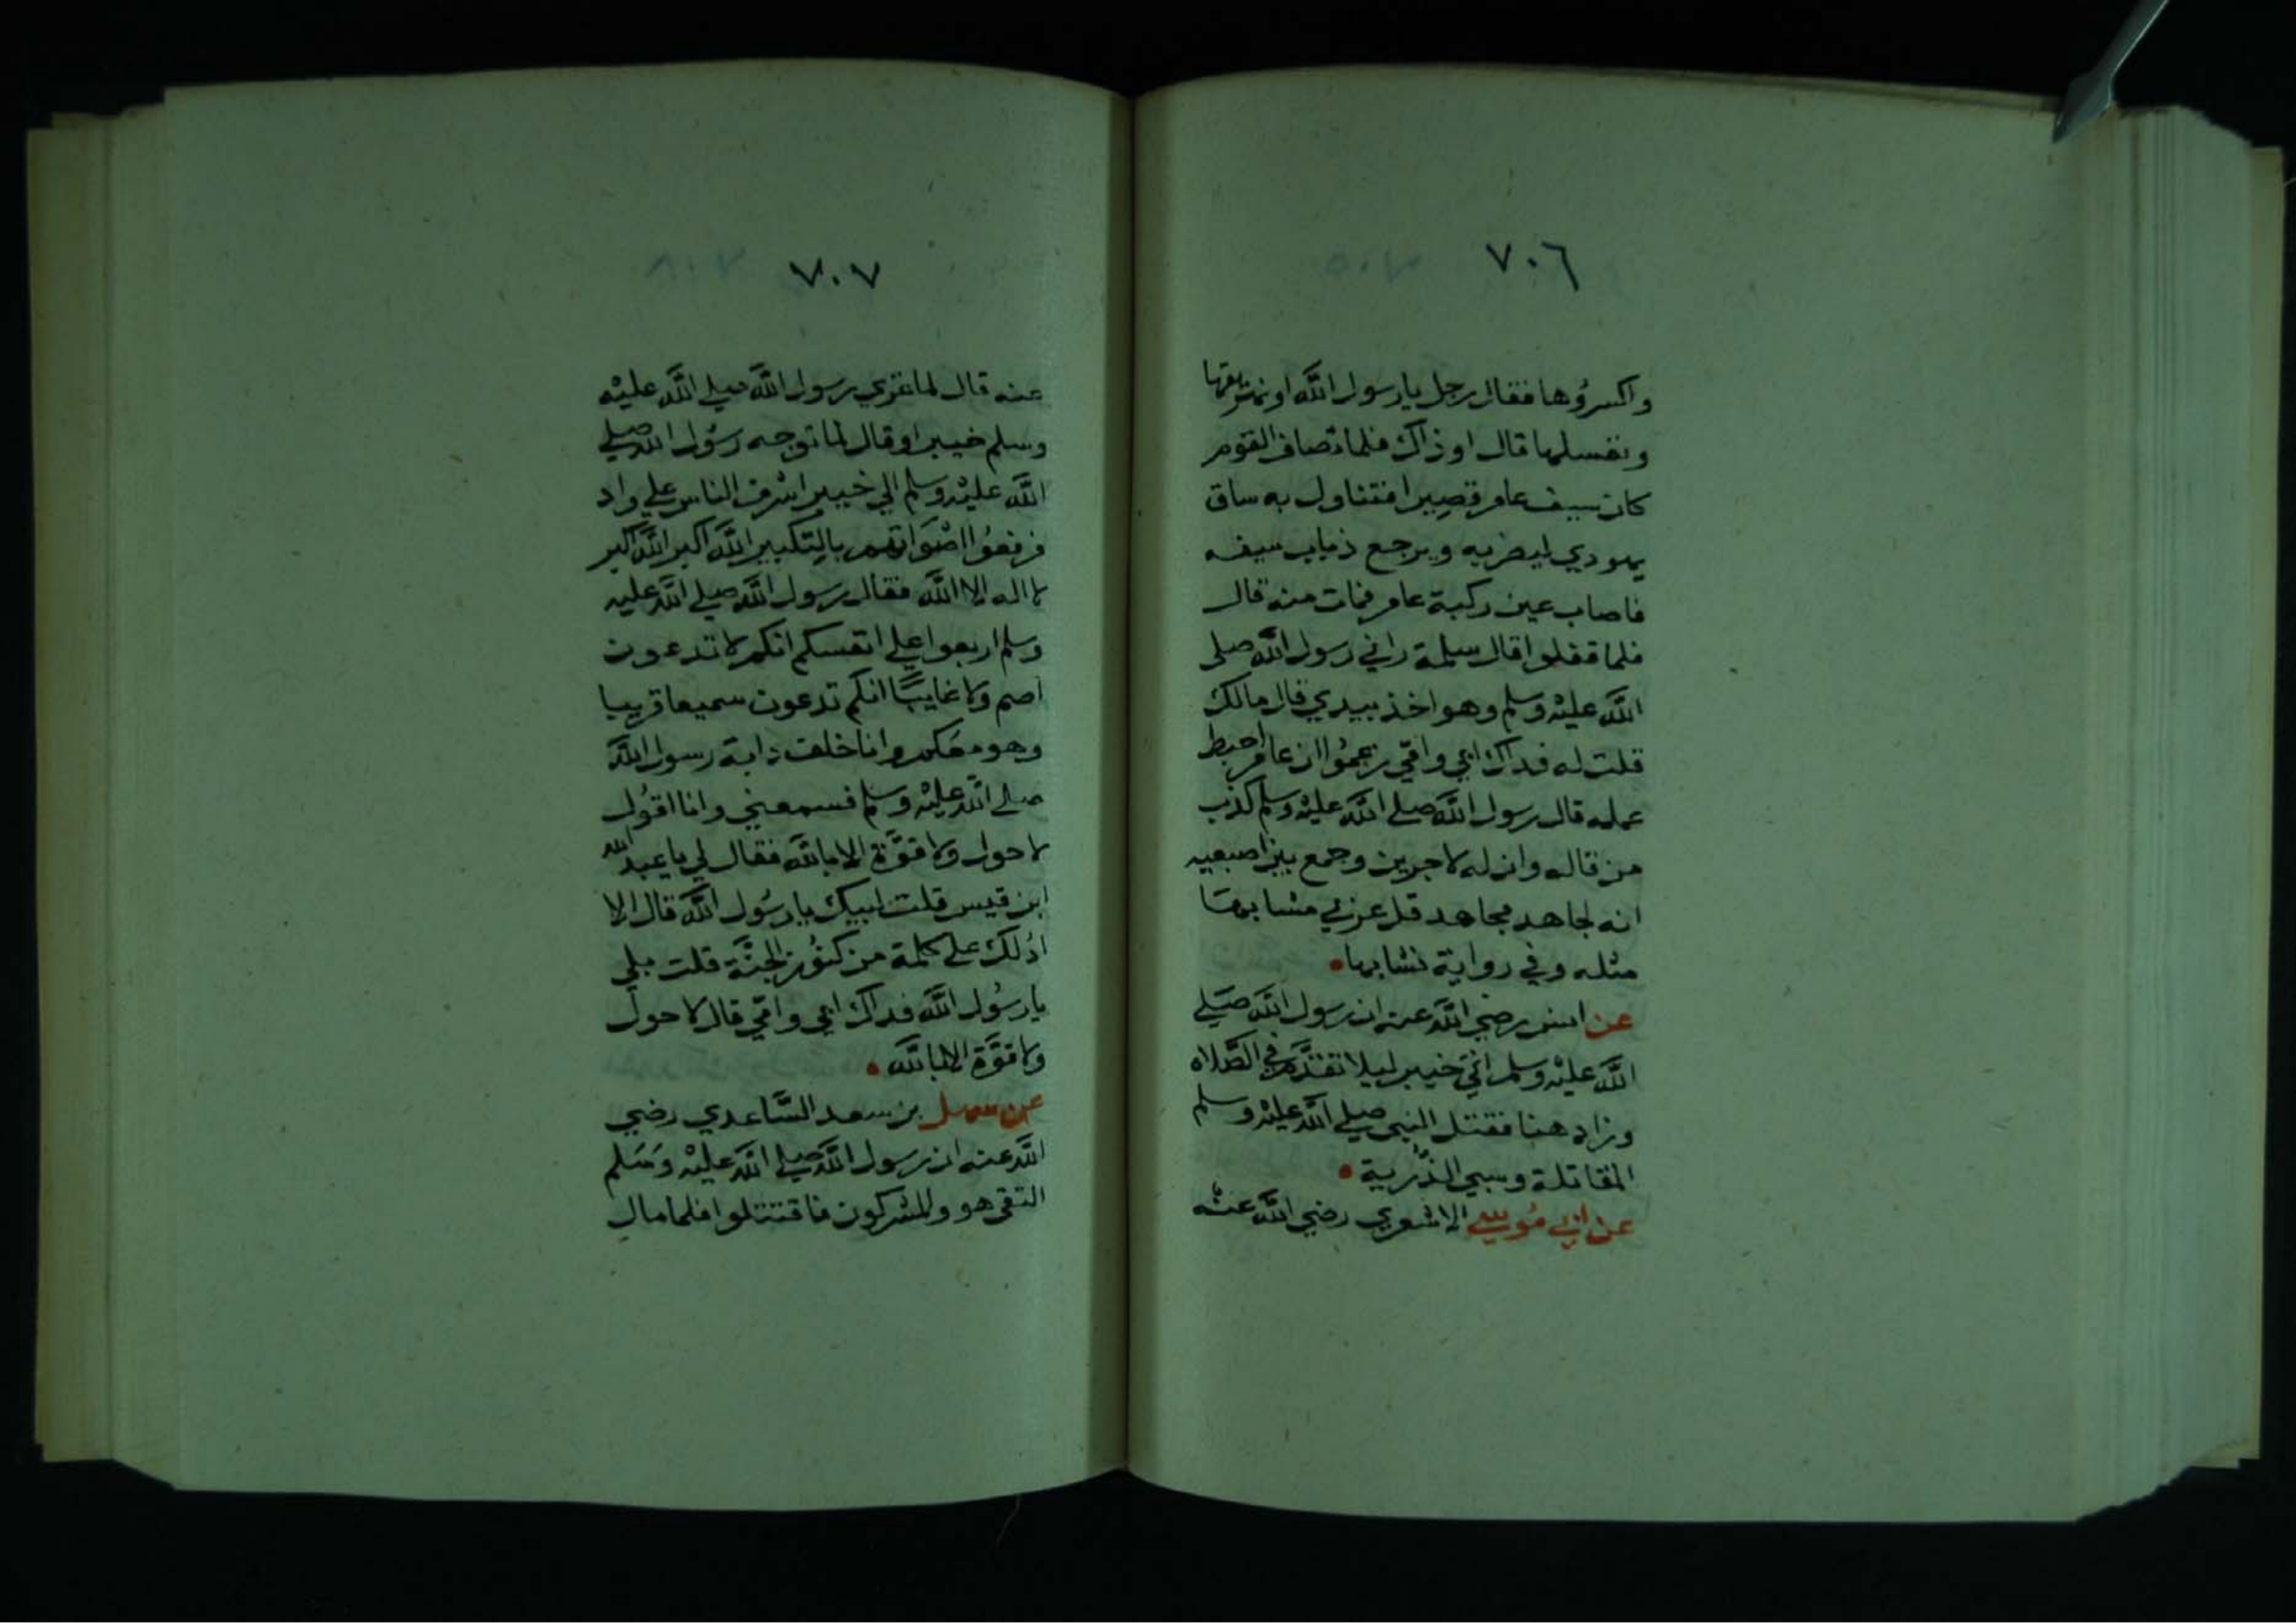 ٧٠٦
واكسروها فقال رجل يا رسول الله او نهريقها
ونغسلها قال او ذاك فلما تصاف القوم
كان سيف عامر قصيرا فتناول به ساق
يهودي ليضربه ويرجع ذباب سيفه
فاصاب عين ركبة عامر فمات منه قال
فلما قفلوا قال سلمة راني رسول الله صلى
الله عليه وسلم وهو اخذ بيدي قال مالك
قلت له فداك ابي وامي زعموا ان عامر احبط
عمله قال رسول الله صلي الله عليه وسلم كذب
من قاله وان له لاجرين وجمع بين اصبعيه
انه لجاهد مجاهد قل عربي مشابها
مثله وفي رواية نشابها
عن انس رضي الله عنه ان رسول الله صلي
الله عليه وسلم اتي خيبر ليلا تقدم في الصلاه
وزاد هنا فقتل النبي صلي الله عليه وسلم
المقاتلة وسبي الذرية
عن ابي موسي الاشعري رضي الله عنه
٧٠٧
عنه قال لما غزي رسول الله صلي الله عليه
وسلم خيبر او قال لما توجه رسول الله صلي
الله عليه وسلم الي خيبر اشرف الناس علي واد
فرفعوا اصواتهم بالتكبير الله اكبر الله اكبر
لا اله الا الله فقال رسول الله صلي الله عليه
وسلم اربعوا علي انفسكم انكم لا تدعون
اصم ولا غايبا انكم تدعون سميعا قريبا
وهو معكم وانا خلف دابة رسول الله
صلي الله عليه وسلم فسمعني وانا اقول
لا حول ولا قوة الا بالله فقال لي يا عبد الله
ابن قيس قلت لبيك يا رسول الله قال الا
ادلك علي كلمة من كنوز الجنة قلت بلي
يا رسول الله فداك ابي وامي قال لا حول
ولا قوة الا بالله
عن سهل بن سعد الساعدي رضي
الله عنه ان رسول الله صلي الله عليه وسلم
التقي هو والمشركون فاقتتلوا فلما مال